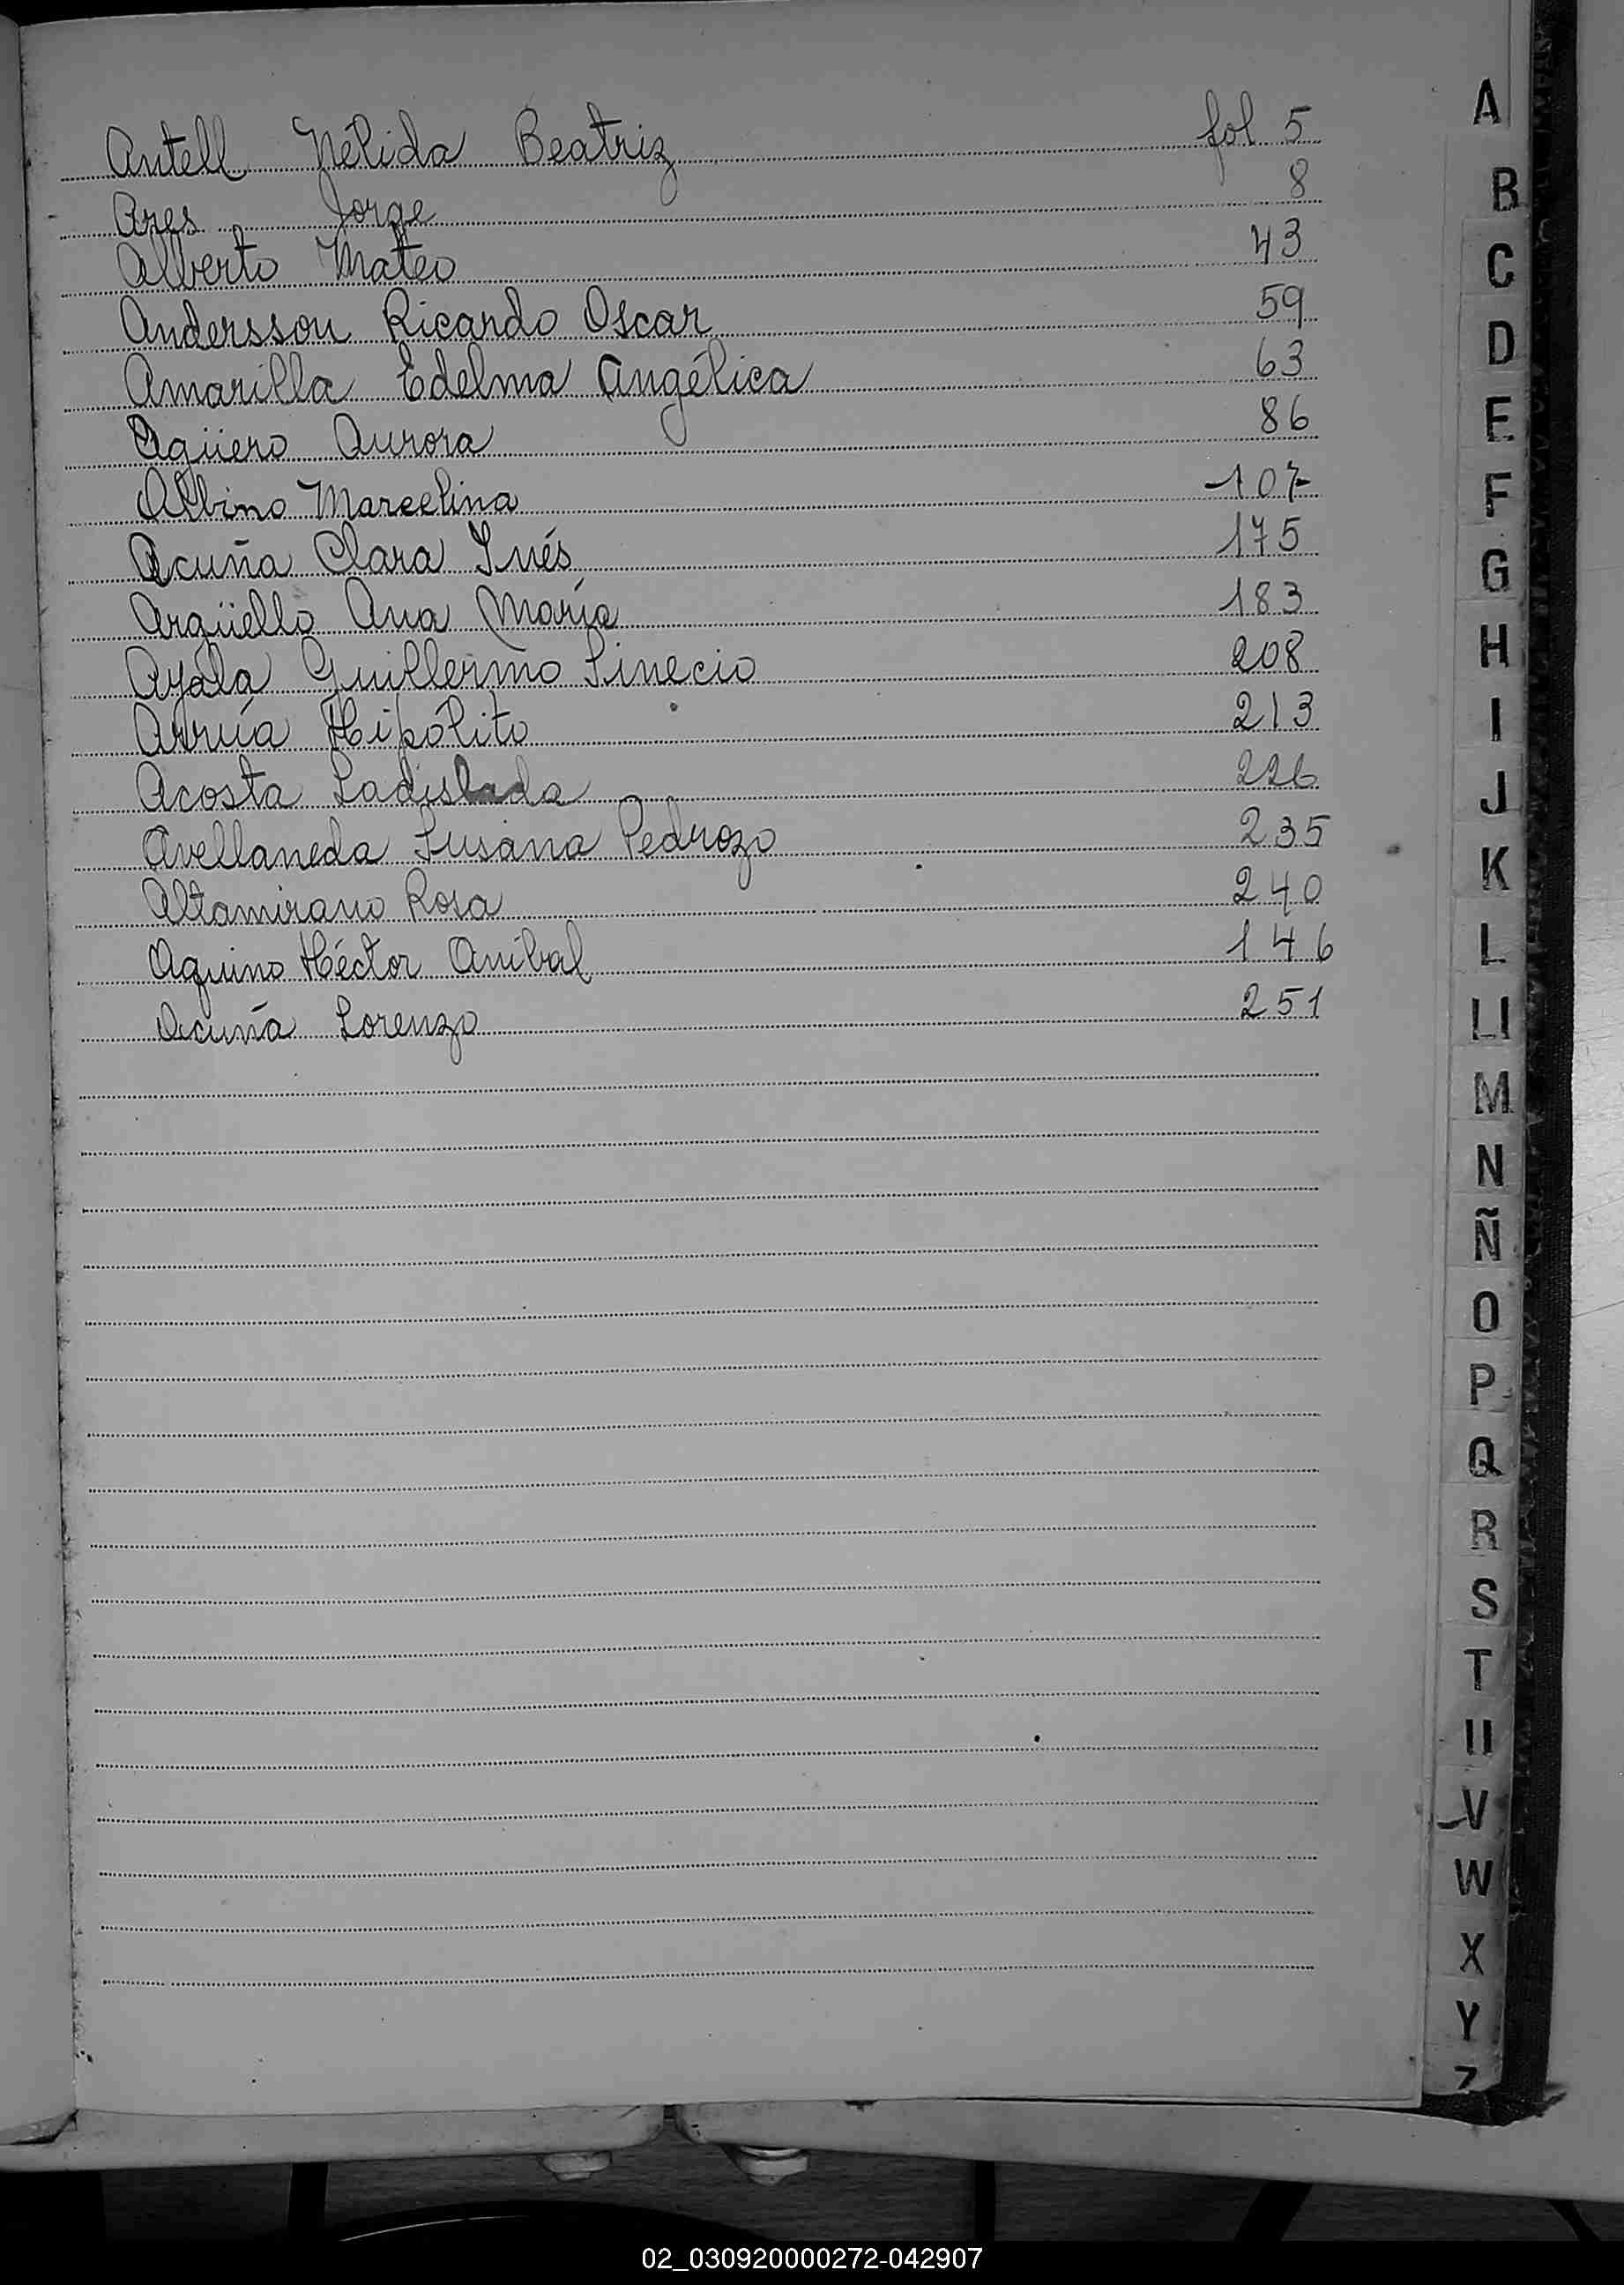 Antell Nélida Beatriz fol 5
Ares Jorge 8
Alberto Mateo 43
Andersson Ricardo Oscar 59
Amarilla Edelma Angélica 63
Agüero Aurora 86
Albino Marcelina 107
Acuña Clara Inés 175
Argüello Ana María 183
Ayala Guillermo Sinecio 208
Arrúa Hipólito 213
Acosta Ladislada 226
Avellaneda Susana Pedrozo 235
Altamirano Rosa 240
Aquino Héctor Aníbal 146
Acuña Lorenzo 251
A
B
C
D
E
F
G
H
I
J
K
L
Ll
M
N
Ñ
O
P
Q
R
S
T
U
V
W
X
Y
Z
02_030920000272-042907